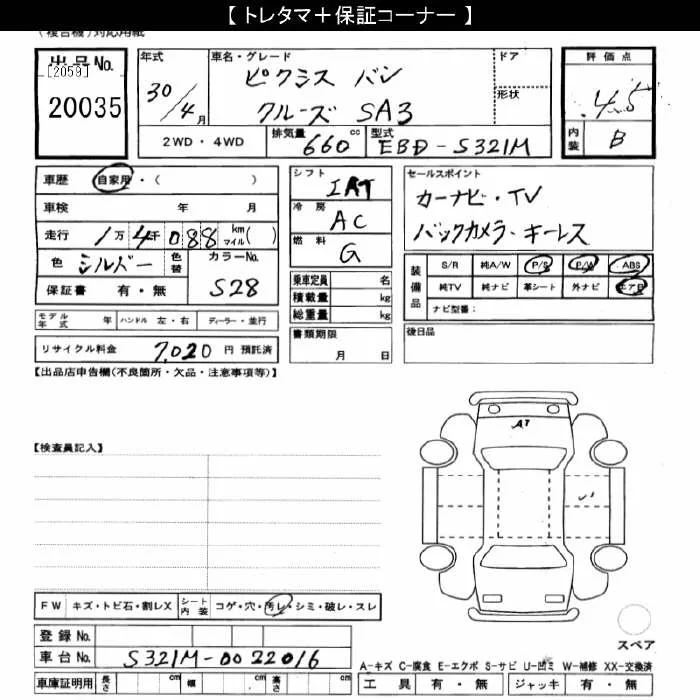 【 トレタマ＋保証コーナー 】
(複合機)対応用紙
出品No.
[2059]
20035
年式
30/4月
車名・グレード
ピクシス バン
クルーズ SA3
ドア
形状
評価点
4.5
内装 B
2WD ・ 4WD
排気量 660 cc
型式 EBD-S321M
車歴 自家用・( )
車検 年 月
走行 1万4千088 km マイル( )
色 シルバー 色替 カラーNo. S28
保証書 有・無
モデル年式 年 ハンドル 左・右 ディーラー・並行
リサイクル料金 7,020 円 預託済
シフト IAT
冷房 AC
燃料 G
乗車定員 名
積載量 kg
総重量 kg
書類期限
月 日
セールスポイント
カーナビ・TV
バックカメラ・キーレス
装備品
S/R 純A/W P/S P/W ABS
純TV 純ナビ 革シート 外ナビ エアB
ナビ型番：
後日品
【出品店申告欄(不良箇所・欠品・注意事項等)】
【検査員記入】
A1
スペア
FW キズ・トビ石・割レX シート内装 コゲ・穴・汚レ・シミ・破レ・スレ
登録No.
車台No. S321M-0022016
車庫証明用 長さ cm 幅 cm 高さ cm
A-キズ C-腐食 E-エクボ S-サビ U-凹ミ W-補修 XX-交換済
工具 有・無 ジャッキ 有・無